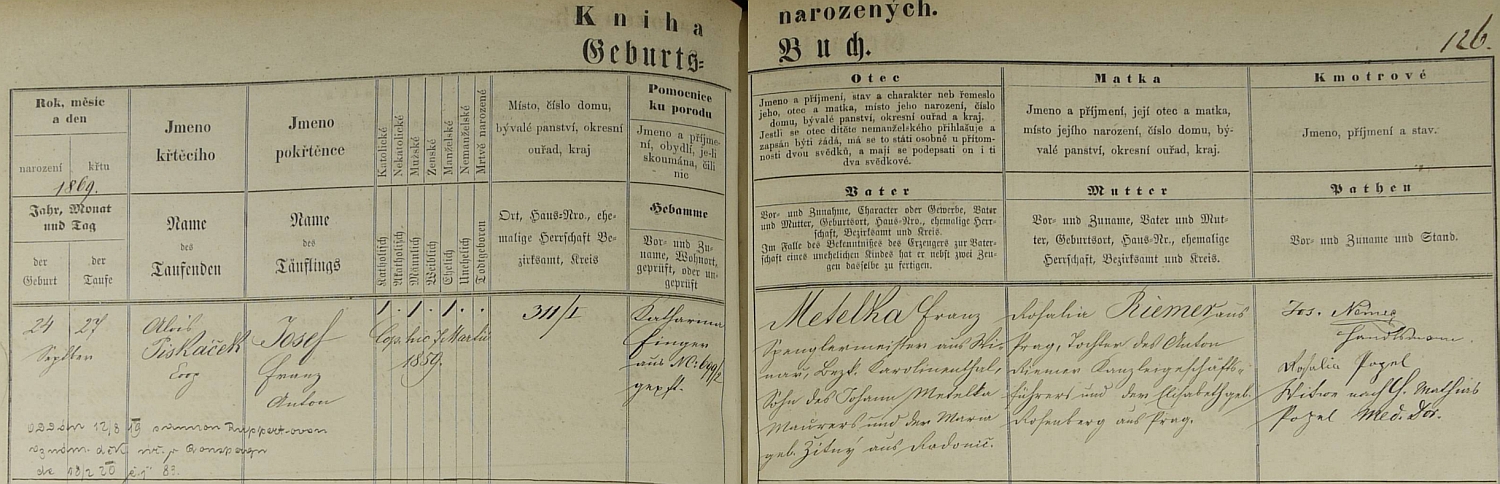 Kniha narozených.
Geburts= Buch.
126.
Rok, měsíc
a den
narození křtu
1869.
Jahr, Monat
und Tag
der Geburt
der Taufe
Jmeno
křtěcího
Name
des
Taufenden
Jmeno
pokřtěnce
Name
des
Täuflings
Katolické
Nekatolické
Mužské
Ženské
Manželské
Nemanželské
Mrtvě narozené
Katholisch
Akatholisch
Männlich
Weiblich
Ehelich
Unehelich
Todtgeboren
Místo, číslo domu,
bývalé panství, okresní
ouřad, kraj
Ort, Haus=Nro., ehe=
malige Herrschaft Be=
zirksamt, Kreis
Pomocnice
ku porodu
Jmeno a příjme-
ní, obydlí, je-li
skoumána, čili
nic
Hebamme
Vor= und Zu=
name, Wohnort,
geprüft, oder un=
geprüft
Otec
Jmeno a příjmení, stav a charakter neb řemeslo
jeho, otec a matka, místo jeho narození, číslo
domu, bývalé panství, okresní ouřad a kraj.
Jestli se otec dítěte nemanželského přihlašuje a
zapsán býti žádá, má se to státi osobně u přítom-
nosti dvou svědků, a mají se podepsati on i ti
dva svědkové.
Vater
Vor= und Zunahme, Character oder Gewerbe, Vater
und Mutter, Geburtsort, Haus=Nro., ehemalige Herr=
schaft, Bezirksamt und Kreis.
Im Falle des Bekenntnißes des Erzeugers zur Vater=
schaft eines unehelichen Kindes hat er nebst zwei Zeu=
gen dasselbe zu fertigen.
Matka
Jmeno a příjmení, její otec a matka,
místo jejího narození, číslo domu, bý-
valé panství, okresní ouřad, kraj.
Mutter
Vor= und Zuname, Vater und Mut=
ter, Geburtsort, Haus=Nr., ehemalige
Herrschaft, Bezirksamt und Kreis.
Kmotrové
Jmeno, příjmení a stav.
Pathen
Vor= und Zuname und Stand.
24 27
Septber
Alois
Piskaček
Coop
Josef
Franz
Anton
1 . 1 . 1 . .
Cop. hic 7 Martii
1859.
311/I
Katharina
Finger
aus N: 649/2
gepft.
Metelka Franz
Spenglermeister aus Wi=
nař, Bezk. Karolinenthal,
Sohn des Johann Metelka
Maurers und der Maria
geb. Žitný aus Radonic.
Rosalia Riemer aus
Prag, Tochter des Anton
Riemer Kanzleigeschäfts=
führers und der Elisabeth geb.
Rosenberg aus Prag.
Jos. Němec
Handelsmann.
Rosalia Pozel
Witwe nach H. Mathias
Pozel Med. Dor.